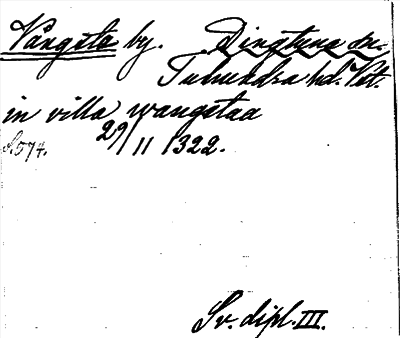 Vångsta by. Dingtuna sn.,
Tuhundra hd. Vst.
in villa wangstaa
S. 574. 29/11 1322.
Sv. dipl. III.